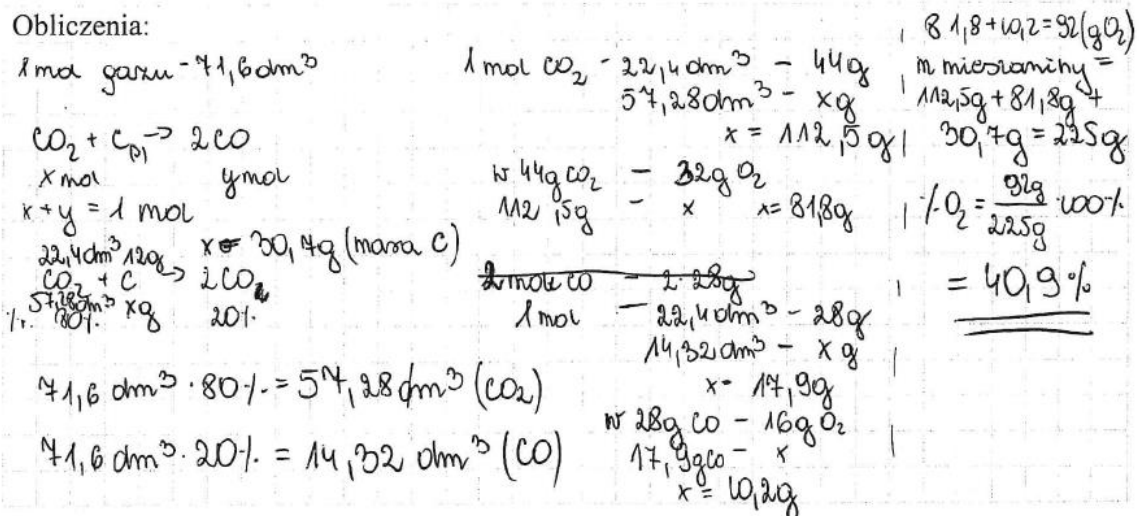 Obliczenia:
1 mol gazu - 71,6 dm³
CO₂ + C₍ₛ₎ → 2CO
x mol y mol
x + y = 1 mol
22,4 dm³ 12g x = 30,7g (masa C)
CO₂ + C → 2CO
57,28 dm³ xg
%. 80%. 20%.
71,6 dm³ · 80%. = 57,28 dm³ (CO₂)
71,6 dm³ · 20%. = 14,32 dm³ (CO)
1 mol CO₂ - 22,4 dm³ - 44g
57,28 dm³ - xg
x = 112,5g
w 44g CO₂ - 32g O₂
112,5g - x x = 81,8g
2 mole CO - 2·28g
1 mol - 22,4 dm³ - 28g
14,32 dm³ - xg
x = 17,9g
w 28g CO - 16g O₂
17,9g CO - x
x = 10,2g
81,8 + 10,2 = 92 (g O₂)
m mieszaniny =
112,5g + 81,8g +
30,7g = 225g
%O₂ = 92g/225g · 100%
= 40,9%